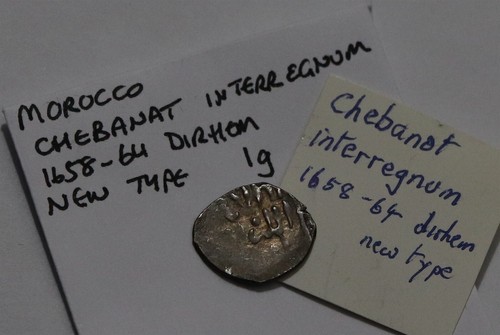 MOROCCO
CHEBANAT INTERREGNUM
1658-64 DIRHOM
NEW TYPE 1g
Chebanat
interregnum
1658-64 dirhem
new type